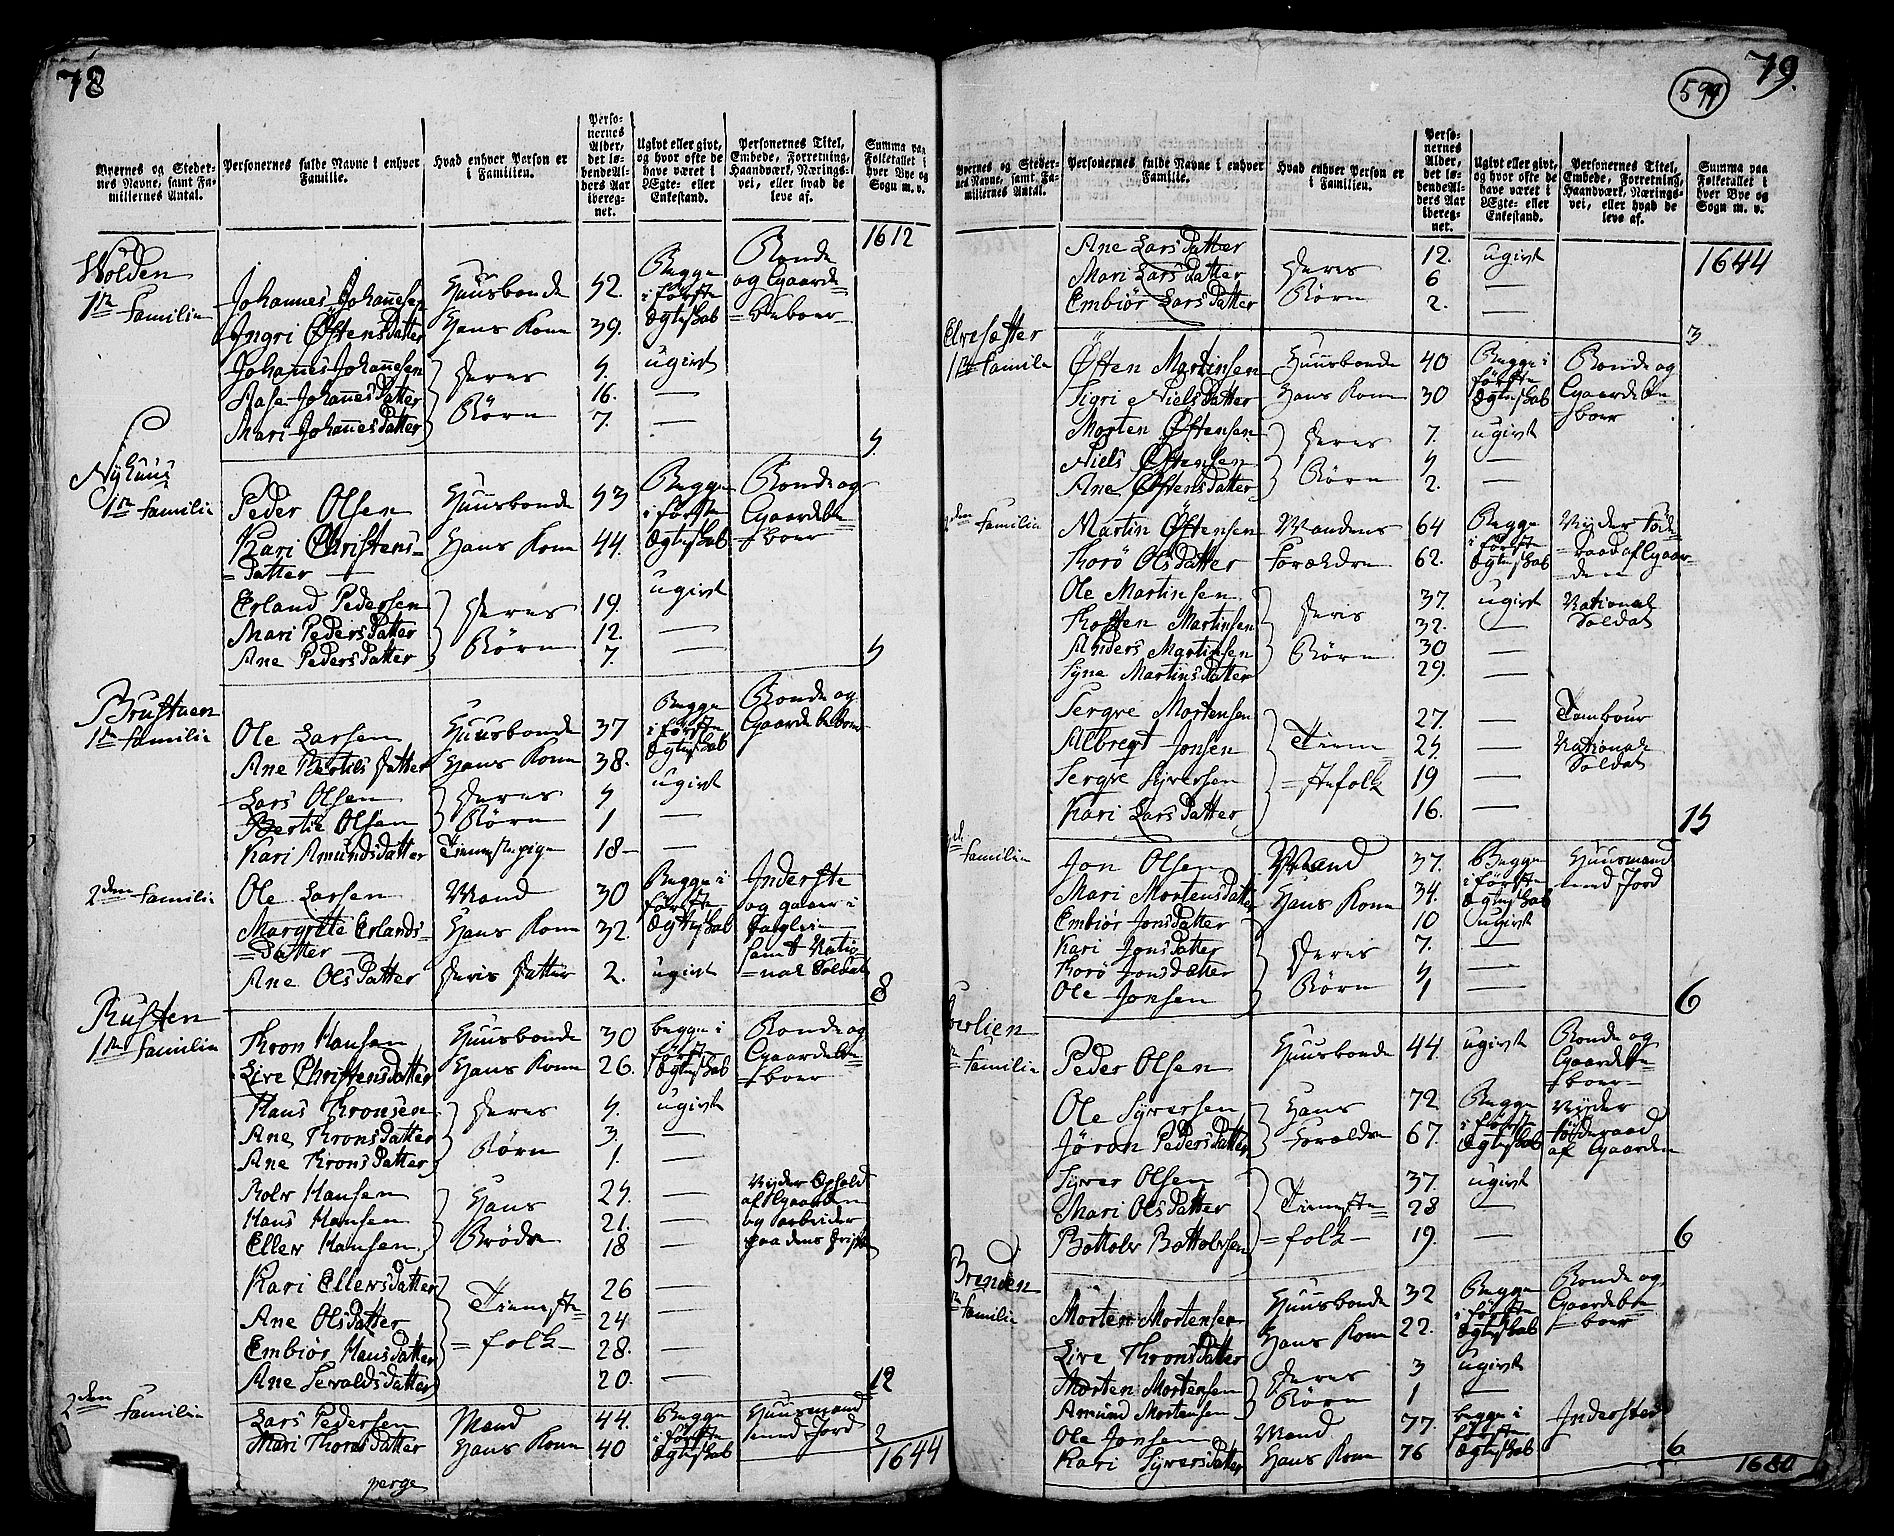 78
Byernes og Steder-
nes Navne, samt Fa-
miliernes Antal.
Personernes fulde Navne i enhver
Familie.
Hvad enhver Person er
i Familien.
Perso-
nernes
Alder,
det lø-
bende Al-
ders Aar
iberegnet.
Ugivt eller givt,
og hvor ofte de
have været i
Ægte- eller
Enkestand.
Personernes Titel,
Embede, Forretning,
Haandværk, Nærings-
vei, eller hvad de
leve af.
Summa paa
Folketallet i
hver Bye og
Sogn m. v.
1612
Wolden
1ste Familie
Johannes Johannesen Huusbonde 52. Begge i første Ægteskab Bonde og Gaardebeboer
Yngri ØstensDatter Hans Kone 39.
Johannes Johannesen Deres Børn 5. ugivt
Aase JohannesDatter 16. —
Mari JohannesDatter 7. —
5
Nyhuus
1ste Familie
Peder Olsen Huusbonde 53 Begge i første Ægteskab Bonde og Gaardebeboer
Kari Christens-
=Datter — Hans Kone 44.
Erland Pedersen Deres Børn 19. ugivt
Mari PedersDatter 12. —
Ane PedersDatter 7. —
5
Brustuen
1ste Familie
Ole Larsen Huusbonde 37 Begge i første Ægteskab Bonde og Gaardebeboer
Ane Bertils Datter Hans Kone 38.
Lars Olsen Deres Børn 5 ugivt
Bertil Olsen 1 —
Kari AmundsDatter Tienestepige 18 —
2den Familie
Ole Larsen Mand 30 Begge i første Ægteskab Inderste og gaaer i Dagleie samt National Soldat
Margrete Erlands-
=Datter — Hans Kone 32.
Ane OlsDatter Deres Datter 2. ugivt
8
Rusten
1ste Familie
Thron Hansen Huusbonde 30 begge i første Ægteskab Bonde og Gaardebeboer
Live ChristensDatter Hans Kone 26.
Hans Thronsen Deres Børn 5. ugivt
Ane ThronsDatter 3. —
Ane ThronsDatter 1. —
Rolv Hansen Hans Brødre 25. — Nyder Ophold af Gaarden og arbeider paa dens Drift
Hans Hansen 21. —
Eller Hansen 18 —
Kari EllersDatter Tieneste=folk 26 —
Ane OlsDatter 24 —
Embiør HansDatter 28. —
Ane SevaldsDatter 20. —
12
2den Familie
Lars Pedersen Mand 44. Begge i første Ægteskab Huusmand med Jord
Mari ThorsDatter Hans Kone 40
2
1644
perge
79.
594
Byernes og Steder-
nes Navne, samt Fa-
miliernes Antal.
Personernes fulde Navne i enhver
Familie.
Hvad enhver Person er
i Familien.
Perso-
nernes
Alder,
det lø-
bende Al-
ders Aar
iberegnet.
Ugivt eller givt,
og hvor ofte de
have været i
Ægte- eller
Enkestand.
Personernes Titel,
Embede, Forretning,
Haandværk, Nærings-
vei, eller hvad de
leve af.
Summa paa
Folketallet i
hver Bye og
Sogn m. v.
1644
Ane LarsDatter Deres Børn 12. ugivt
Mari LarsDatter 6 —
Embiør LarsDatter 2. —
3
Elvesæter
1ste Familie
Østen Martinsen Huusbonde 40 Begge i første Ægteskab Bonde og Gaardebeboer
Sigri NielsDatter Hans Kone 30
Morten Østensen Deres Børn 7. ugivt
Niels Østensen 5 —
Ane ØstensDatter 2. —
2den Familie
Martin Østensen Mandens Forældre 64 Begge i første Ægteskab Nyder Føderaad af Gaarden
Thorø OlsDatter 62.
Ole Martinsen Deres Børn 37. ugivt National Soldat
Thosten Martinsen 32. —
Anders Martinsen 30 —
Syne MartinsDatter 29. —
Sergve Mortensen Tieneste=folk 27. — Tambour
Albregt Jonsen 25. — National Soldat
Sergve Syversen 19 —
Kari LarsDatter 16. —
15
Familie
Jon Olsen Mand 37. Begge i første Ægteskab Huusmand med Jord
Mari MortensDatter Hans Kone 34.
Embiør JonsDatter Deres Børn 10 ugivt
Kari JonsDatter 7. —
Thorø JonsDatter 5 —
Ole Jonsen 1 —
6
Familie
Peder Olsen Huusbonde 44. ugivt Bonde og Gaardebeboer
Ole Syversen Hans Forældre 72 Begge i første Ægteskab Nyder Føderaad af Gaarden
Jøran PedersDatter 67.
Syver Olsen Tieneste=folk 37. ugivt
Mari OlsDatter 28 —
Bottolv Bottolvsen 19. —
6
Brenden
Familie
Morten Mortensen Huusbonde 32 Begge i første Ægteskab Bonde og Gaardebeboer
Live ThronsDatter Hans Kone 22.
Morten Mortensen Deres Børn 3 ugivt
Amund Mortensen 1 —
Ole Jonsen Mand 77. begge i første Ægteskab Inderster
Kari SyversDatter Hans Kone 76
6
1680